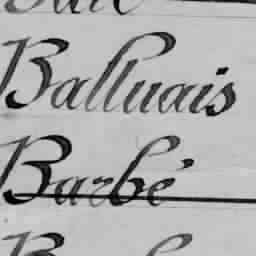 Balluais
Barbé